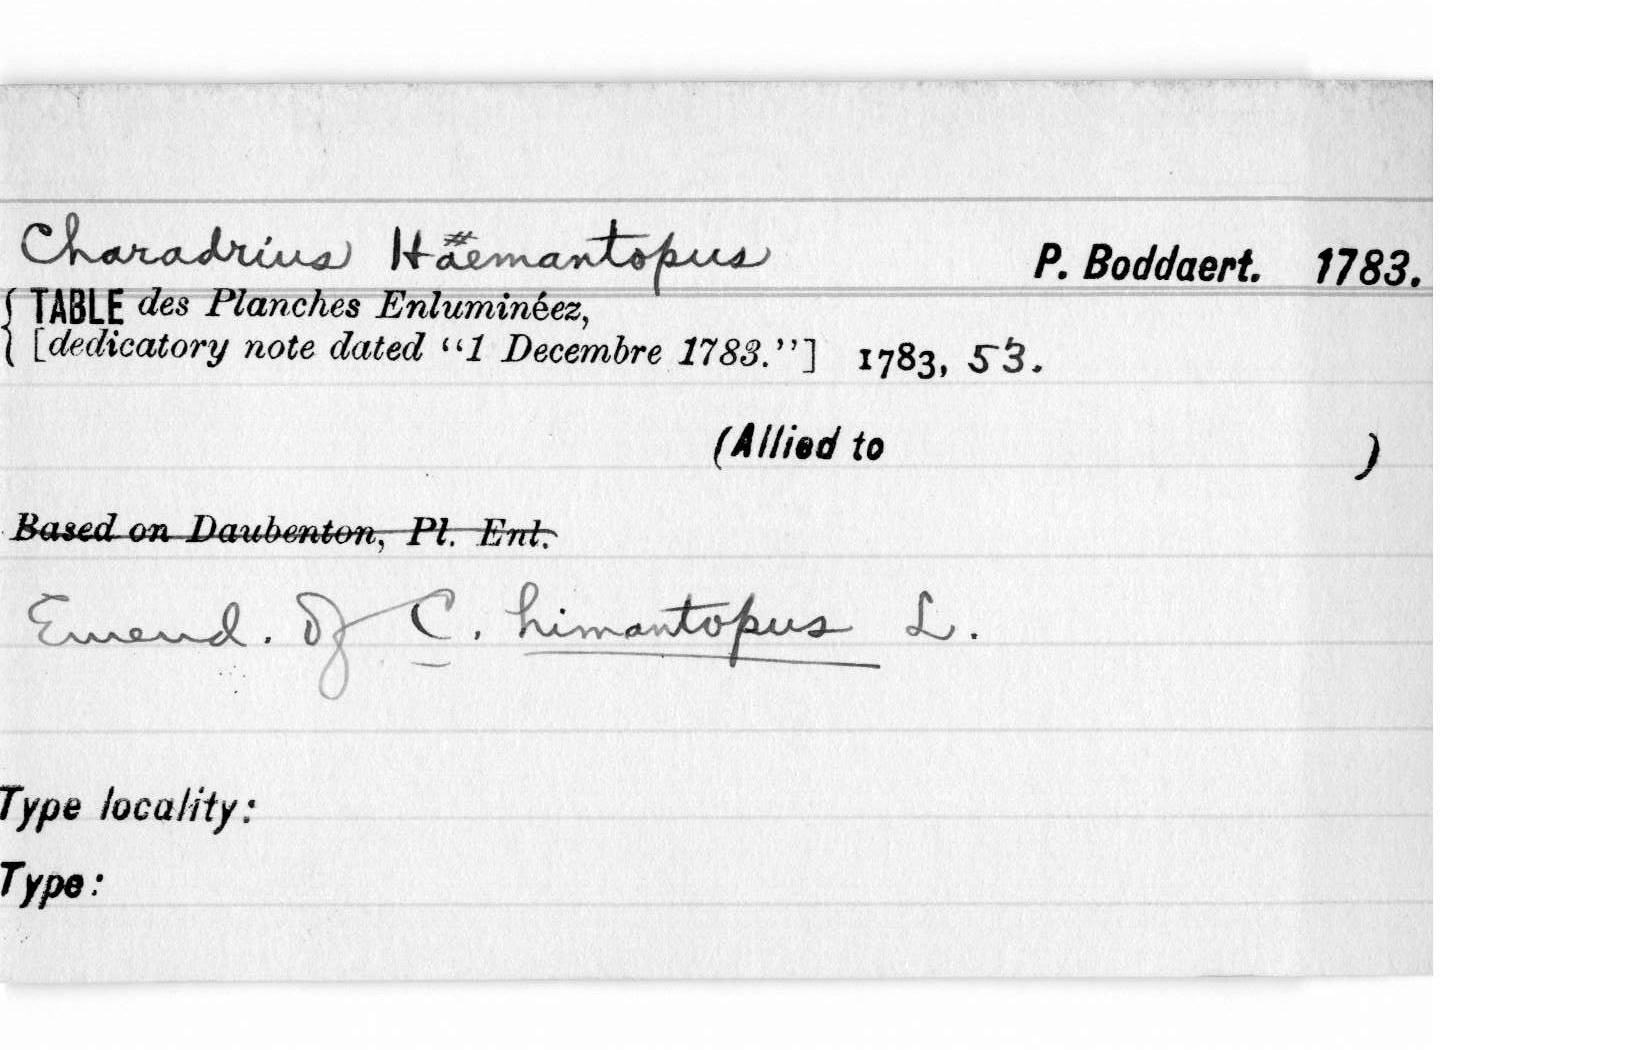 Charadrius Haemantopus P. Boddaert. 1783.
{ TABLE des Planches Enluminéez,
[dedicatory note dated “1 Decembre 1783.”] 1783, 53.
(Allied to )
Based on Daubenton, Pl. Enl.
Emend. of C. himantopus L.
Type locality:
Type: